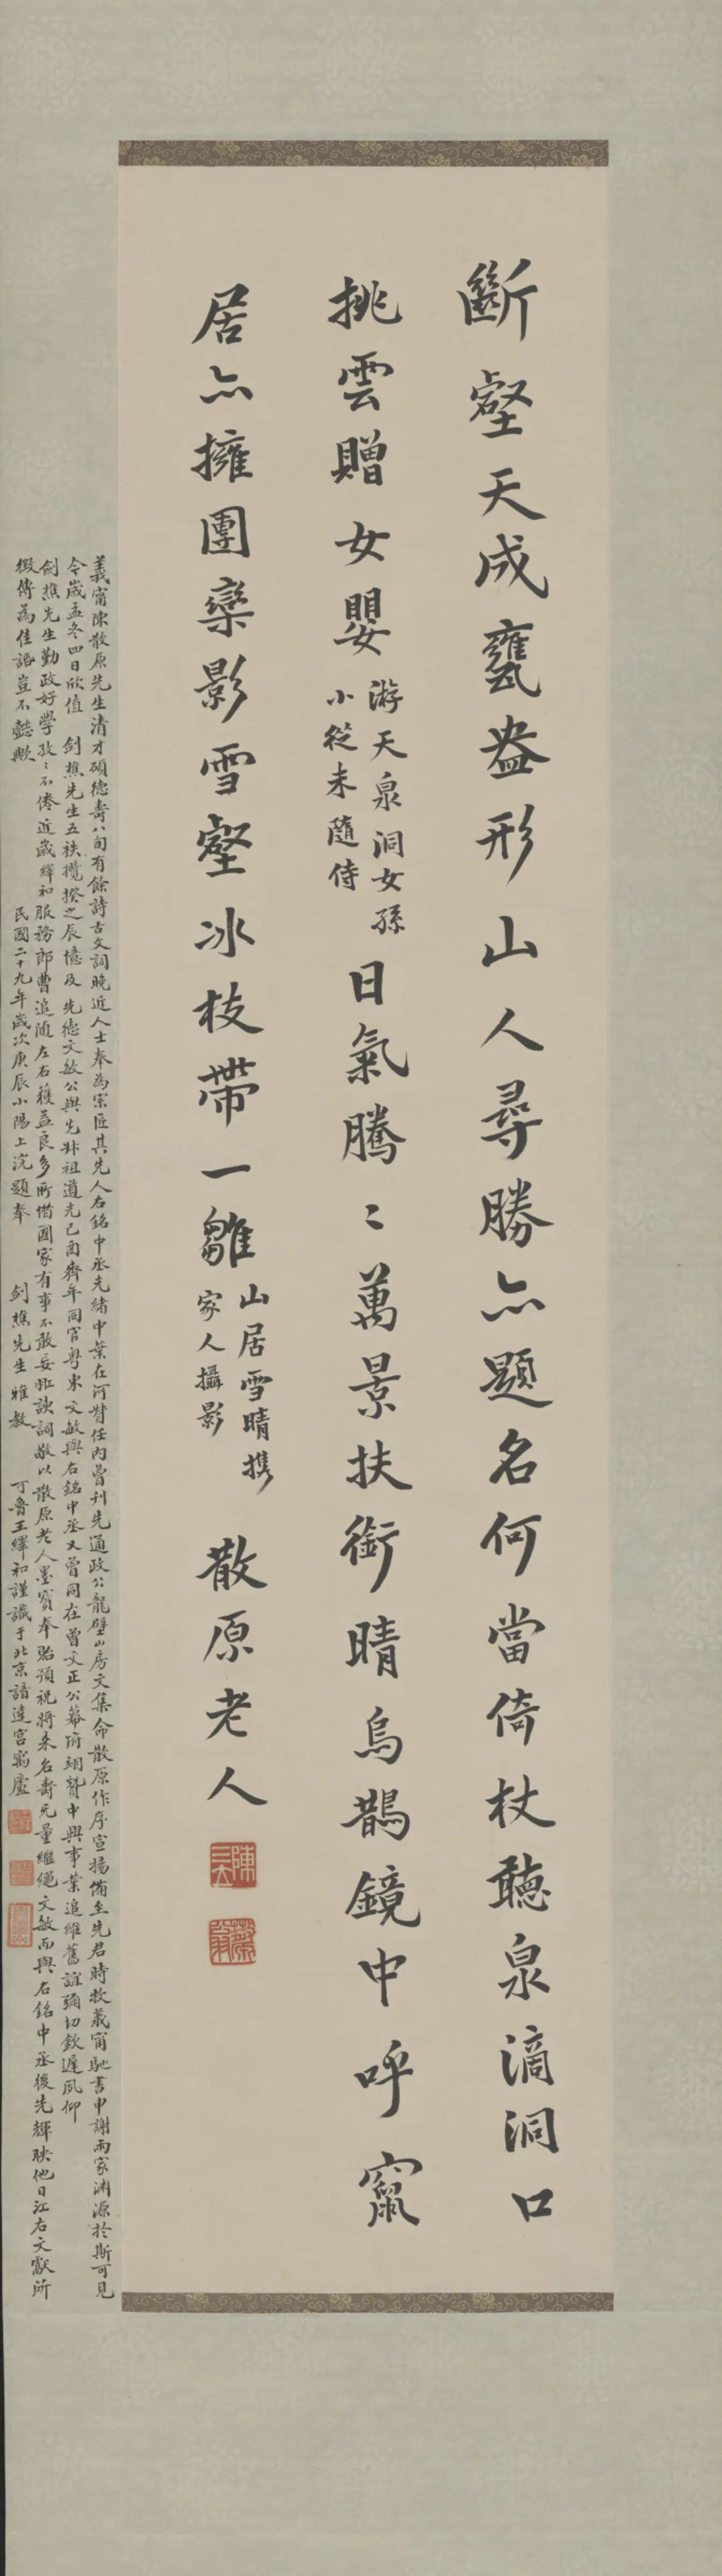 斷壑天成甕盎形山人尋勝亦題名何當倚杖聽泉滴洞口
挑雲贈女嬰
游天泉洞女孫
小從未隨侍
日氣騰〻萬景扶銜晴烏鵲鏡中呼竄
居亦擁團欒影雪壑冰枝帶一雛
山居雪晴攜
家人攝影
散原老人
陳三立
散原
義甯陳散原先生清才碩德壽八旬有餘詩古文詞晚近人士奉為宗匠其先人右銘中丞光緒中葉在河北任內曾刊先通政公龍壁山房文集命散原作序宣揚備至先君時牧義甯馳書申謝兩家淵源於斯可見
今歲孟冬四日欣值 劍樵先生五秩攬揆之辰憶及 先德文敏公與先叔祖道光己酉齊年同官粵東文敏與右銘中丞又曾同在曾文正公幕府翊贊中興事業追維舊誼彌切欽遲夙仰
劍樵先生勤政好學孜〻不倦近歲繹和服務郎曹追隨左右獲益良多所惜國家有事不敢妄作諛詞敬以散原老人墨寶奉貽預祝將來名壽無量繼繩文敏而與右銘中丞後先輝映他日江右文獻所
徵傳為佳話豈不懿歟 民國二十九年歲次庚辰小陽上浣題奉 劍樵先生雅教 可魯王繹和謹識于北京諳達宮寓廬